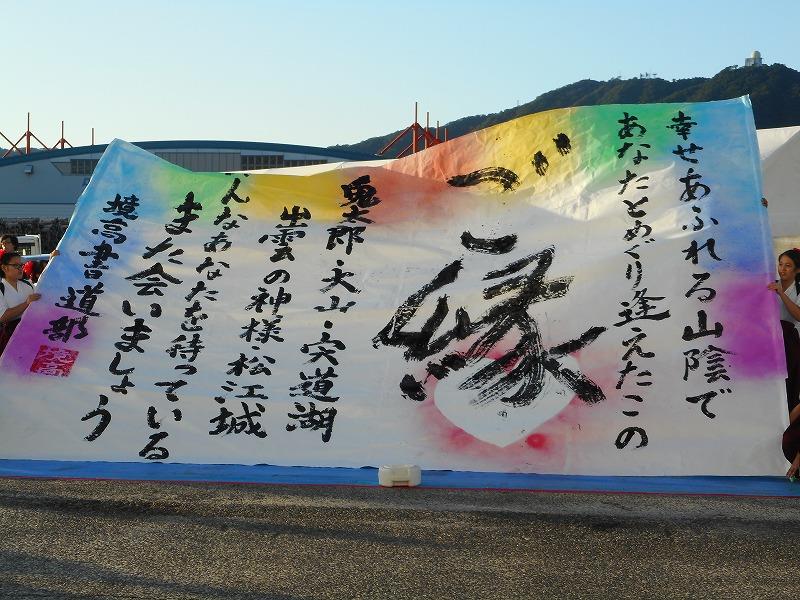 幸せあふれる山陰で
あなたとめぐり逢えたこの
ご縁
鬼太郎・大山・宍道湖
出雲の神様松江城
んなあなたを待っている
また会いましょう
境高書道部